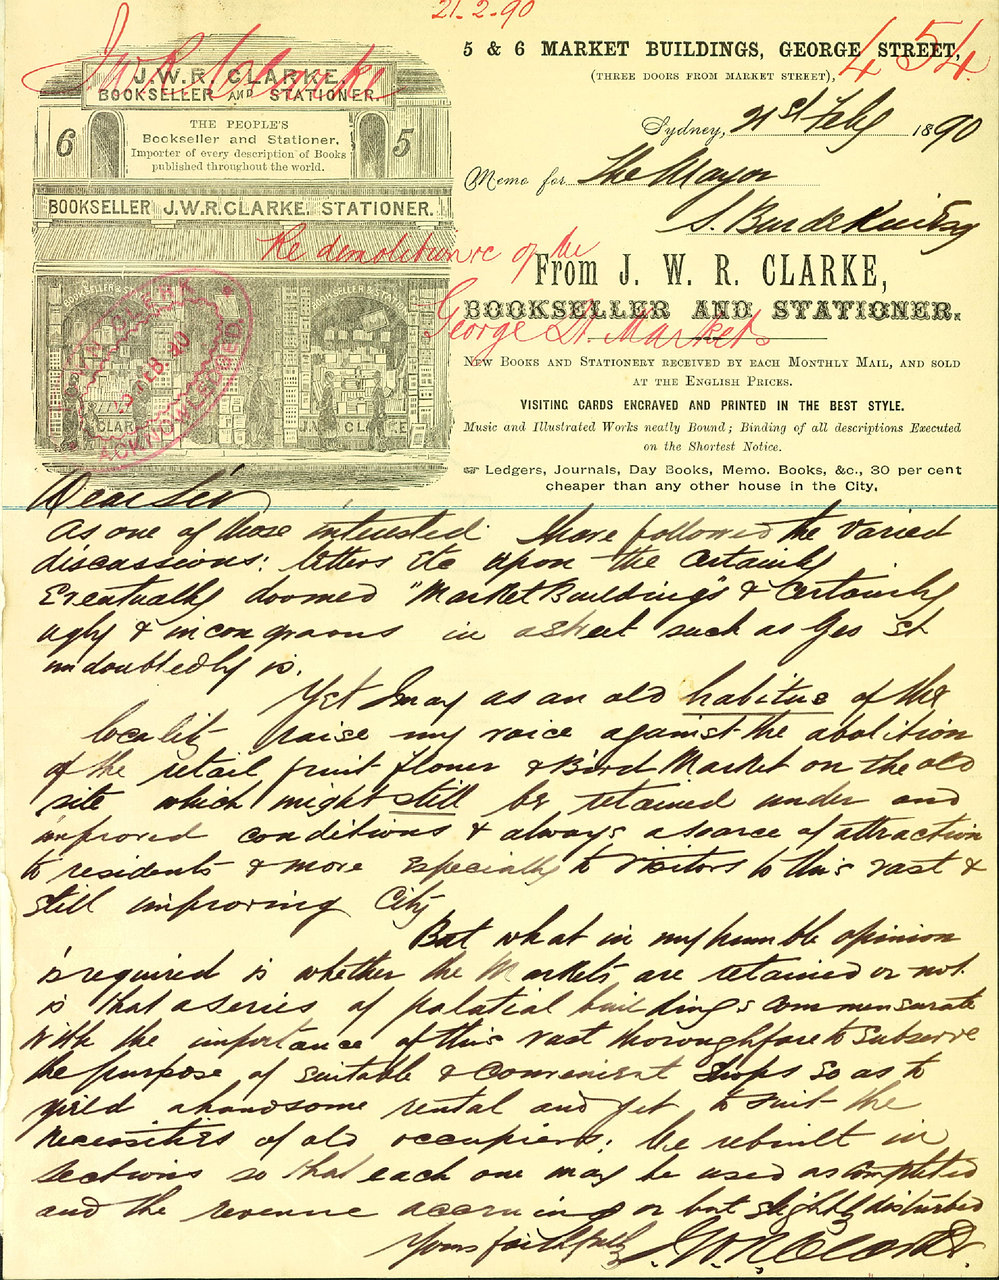 21.2.90
J.W.R. Clarke
454
J.W.R. CLARKE.
BOOKSELLER AND STATIONER.
6
5
THE PEOPLE'S
Bookseller and Stationer,
Importer of every description of Books
published throughout the world.
BOOKSELLER J.W.R. CLARKE. STATIONER.
BOOKSELLER & 
BOOKSELLER & STATIO
CLAR
J.W. CLARKE
ACKNOWLEDGED
5 & 6 MARKET BUILDINGS, GEORGE STREET,
(THREE DOORS FROM MARKET STREET),
Sydney, 21st Feby 1890
Memo for The Mayor
S. Burdekin Esq
Re demolition &c of the
George St. Markets
From J. W. R. CLARKE,
BOOKSELLER AND STATIONER.
NEW BOOKS AND STATIONERY RECEIVED BY EACH MONTHLY MAIL, AND SOLD
AT THE ENGLISH PRICES.
VISITING CARDS ENGRAVED AND PRINTED IN THE BEST STYLE.
Music and Illustrated Works neatly Bound; Binding of all descriptions Executed
on the Shortest Notice.
☞ Ledgers, Journals, Day Books, Memo. Books, &c., 30 per cent
cheaper than any other house in the City.
Dear Sir
As one of those interested I have followed the varied
discussions: letters etc upon the certainly
Eventually doomed "Market Buildings" & Certainly
ugly & incongruous in a street such as Geo St
undoubtedly is.
Yet I may as an old habitue of the
locality raise my voice against the abolition
of the retail fruit flower & Bird Market on the old
site which might still be retained under and
improved conditions & always a source of attraction
to residents & more especially to Visitors to this vast &
still improving City
But what in my humble opinion
is required is whether the Markets are retained or not.
is that a series of palatial buildings commensurate
With the importance of this vast thoroughfare to subserve
the purpose of suitable & convenient shops so as to
yield a handsome rental and yet to suit the
necessities of old occupiers: be rebuilt in
sections so that each one may be used as completed
and the revenue accruing or but slightly disturbed
Yours faithfully J.W.R. Clarke.